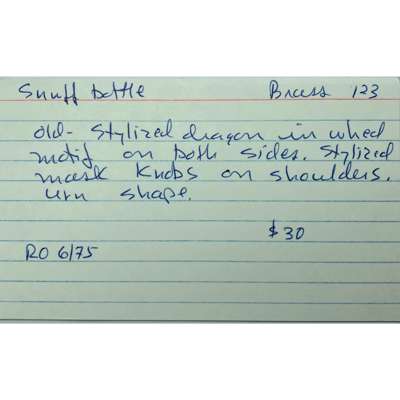 Snuff bottle Brass 123
old- stylized dragon in wheel
motif on both sides. Stylized
mask knobs on shoulders.
urn shape.
$30
RO 6/75